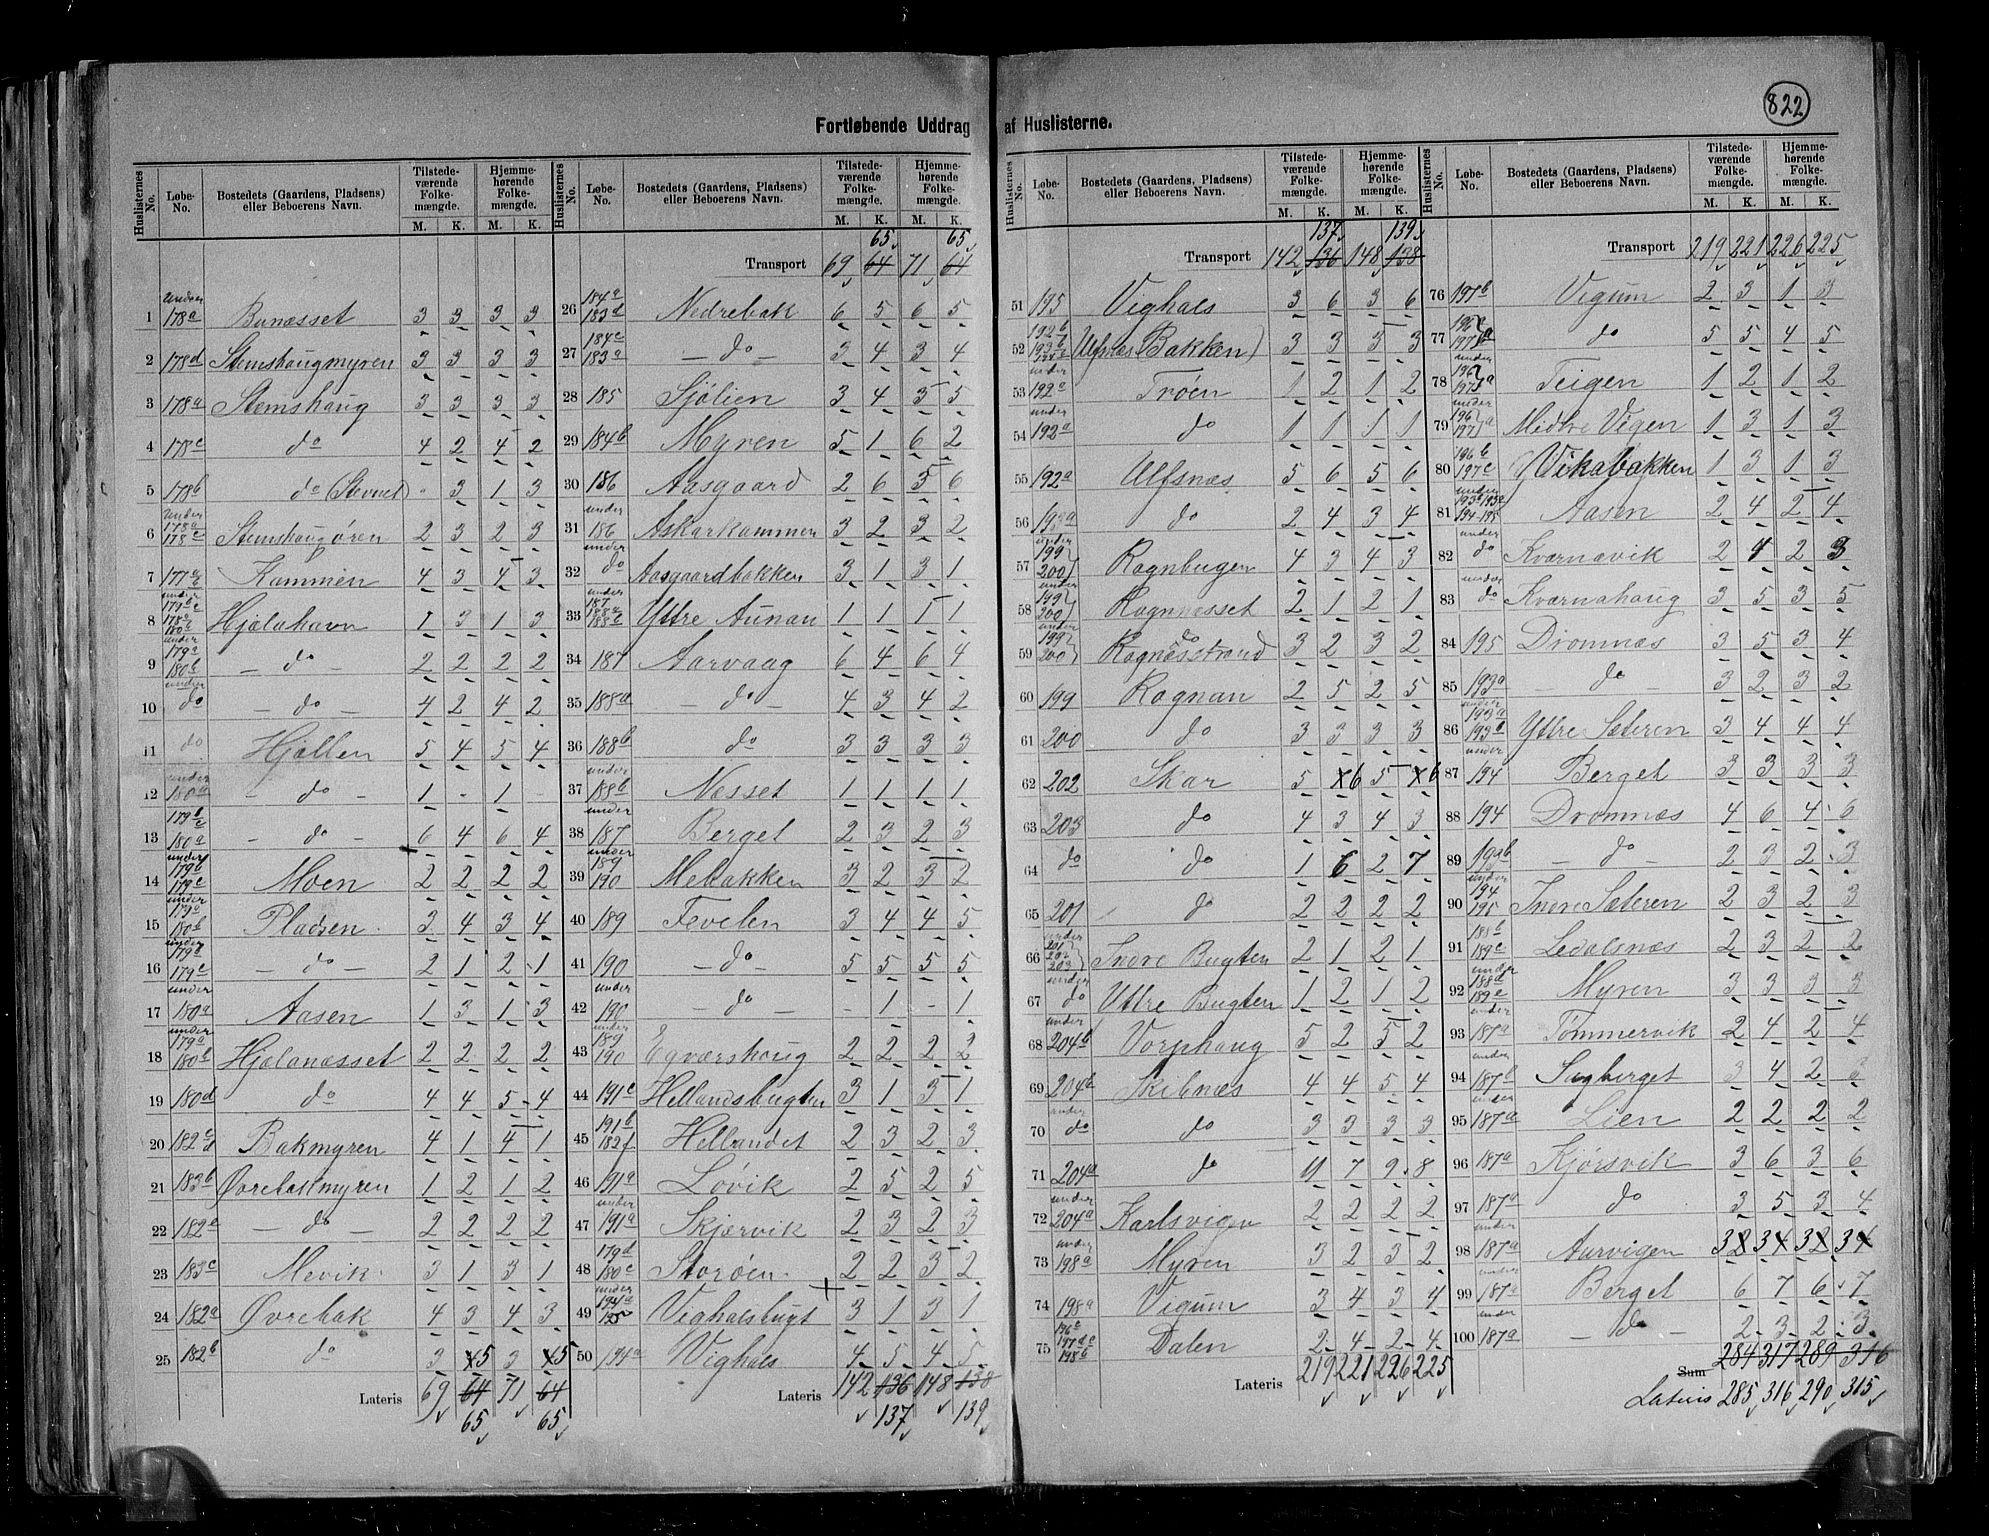 822
Fortløbende Uddrag af Huslisterne.
Huslisternes No. Løbe-No. Bostedets (Gaardens, Pladsens) eller Beboerens Navn. Tilstedeværende Folkemængde. Hjemmehørende Folkemængde.
M. K. M. K.
1 under 178a Bunæsset 3 3 3 3
2 178d Stemshaugmyren 3 3 3 3
3 178a Stemshaug 3 3 3 3
4 178c do 4 2 4 2
5 178b do (Stevnet) - 3 1 3
6 under 178a 178c Stemshaugøren 2 3 2 3
7 177a Kammen 4 3 4 3
8 under Hjelahavn 1 3 1 3
9 under 179a 180b — do — 2 2 2 2
10 under do — do — 4 2 4 2
11 do Hjellen 5 4 5 4
12 under 180a — do — 1 - 1 -
13 180a — do — 6 4 6 4
14 under 179b 179c Moen 2 2 2 2
15 under 179a 180b Pladsen 3 4 3 4
16 under 179a 179c — do — 2 1 2 1
17 under 180a Aasen 1 3 1 3
18 under 179a 180b Hjelanæsset 2 2 2 2
19 180d do 4 4 5 4
20 182c d Bakmyren 4 1 4 1
21 183b Øvrebakmyren 1 2 1 2
22 182e — do — 2 2 2 2
23 183c Mevik 3 1 3 1
24 182a Øvrebak 4 3 4 3
25 182b do 3 5 3 5
Lateris 69 64 71 64
65 65
Transport 69 64 71 64
65 65
26 184a 183d Nedrebak 6 5 6 5
27 184c 183a — do — 3 4 3 4
28 185 Sjølien 3 4 3 5
29 184b Myren 5 1 6 2
30 186 Aasgaard 2 6 5 6
31 under 186 Askarkammen 3 2 3 2
32 under do Aasgaardbakken 3 1 3 1
33 187 188a Yttre Aunan 1 1 1 1
34 187 Aarvaag 6 4 6 4
35 188a — do — 4 3 4 2
36 188b do 3 3 3 3
37 under 188b Nesset 1 1 1 1
38 under 187 Berget 2 3 2 3
39 under 189 190 Mebakken 3 2 3 2
40 189 Fevelen 3 4 4 5
41 190 — do — 5 5 5 5
42 under 190 — do — - 1 - 1
43 under 189 190 Egværshaug 2 2 2 2
44 191c Hellandsbugten 3 1 3 1
45 191b 182f Hellandet 2 3 2 3
46 191a Løvik 2 5 2 5
47 under 191a Skjærvik 2 3 2 3
48 179d 180c Storøen 2 2 3 2
49 under Vighalsbugt 3 1 3 1
50 Vighals 4 5 4 5
Lateris 142 136 148 138
137 139
137 139
Transport 142 136 148 138
51 195 Vighals 3 6 3 6
52 192b 193b Ulfsnæs (Bakken) 3 3 3 3
53 under 192a Trøen 1 2 1 2
54 under 192a do 1 1 1 1
55 192a Ulfsnæs 5 6 5 6
56 193a do 2 4 3 4
57 under 199 200 Rognbugen 4 3 4 3
58 under 199 200 Rognnæsset 2 1 2 1
59 under 199 200 do Rognæsstrand 3 2 3 2
60 199 Rognan 2 5 2 5
61 200 do 3 3 3 3
62 202 Skar 5 6 5 6
63 203 do 4 3 4 3
64 do do 1 6 2 7
65 201 do 2 2 2 2
66 under 201 202 203 Indre Bugten 2 1 2 1
67 under do Yttre Bugten 1 2 1 2
68 under 204b Vorphaug 5 2 5 2
69 204b Skibnæs 4 4 5 4
70 under do do 3 3 3 3
71 204a do 9 7 9 8
72 under 204a Karlsvigen 2 2 2 2
73 under 198a Myren 3 2 3 2
74 198a Vigum 3 4 3 4
75 196c 197d e 198b Dalen 2 4 2 4
Lateris 219 221 226 225
Transport 219 221 226 225
76 197b Vigum 2 3 1 3
77 do 5 5 4 5
78 under 196 197 a Teigen 1 2 1 2
79 under 196 197 a Midtre Vigen 1 3 1 3
80 196b 197c Vikabakken 1 3 1 3
81 under 194-195 Aasen 2 4 2 4
82 under do Kværnavik 2 4 2 3
83 under do Kværnahaug 3 5 3 5
84 195 Dromnæs 3 5 3 4
85 193a — do — 3 2 3 2
86 under 193a 193b Yttre Sæteren 3 4 4 4
87 under 194 Berget 3 3 3 3
88 194 Dromnæs 4 6 4 6
89 — do — 2 3 2 3
90 under 194 195 Indre Sæteren 2 3 2 3
91 188b 189c Ledalsnæs 2 3 2 2
92 under 188b 189c Myren 3 3 3 3
93 under 187a Tømmervik 2 4 2 4
94 under 187b Sagberget 3 4 2
95 under 187a Lien 2 2 2 2
96 187a Kjørsvik 3 6 3 6
97 187a do 3 5 3 4
98 under 187a Aurvigen 3 3 3 3
99 under 187a Berget 6 7 6 7
100 under 187a — do — 2 3 2 3
Sum 284 317 289 316
Lateris 285 316 290 315